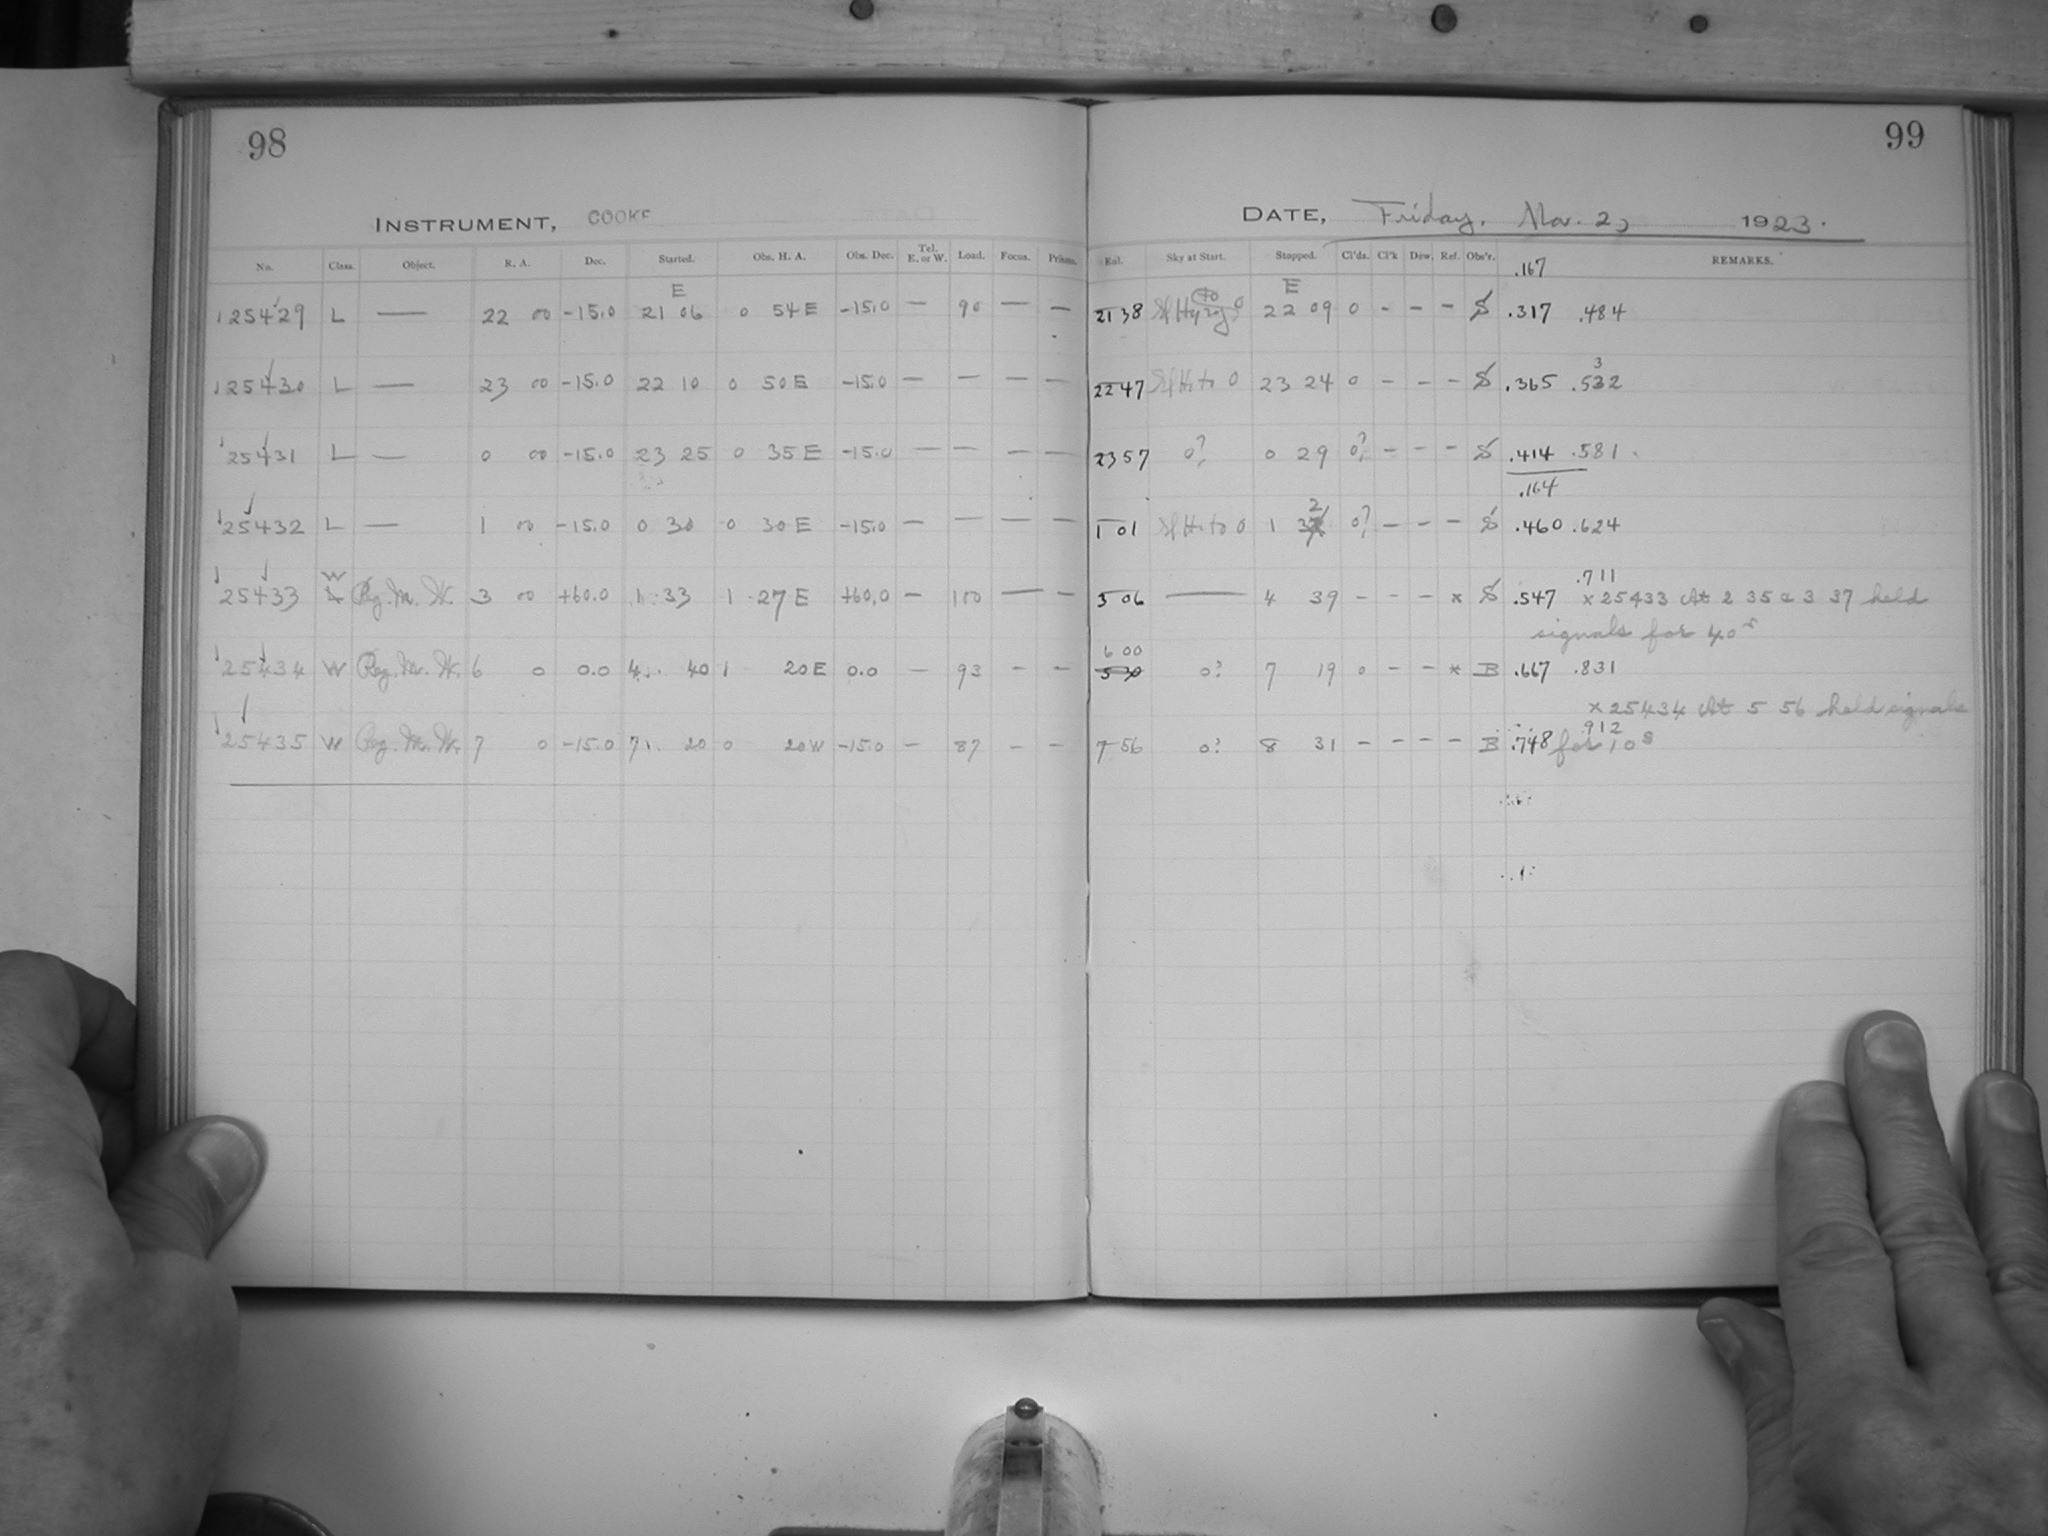 98
99
INSTRUMENT, COOKE
DATE, Friday, Nov. 2, 1923.
No. Class. Object. R. A. Dec. Started. Obs. H. A. Obs. Dec. Tel. E. or W. Load. Focus. Prisms. Eql. Sky at Start. Stopped. Cl'ds. Cl'k Dew. Ref. Obs'r. REMARKS.
E E .167
125429 L — 22 00 -15.0 21 06 0 54 E -15.0 — 90 — — 2138 0 22 09 0 - - - S .317 .484
3
125430 L — 23 00 -15.0 22 10 0 50 E -15.0 — — — — 2247 to 0 23 24 0 - - - S .365 .532
25431 L — 0 00 -15.0 23 25 0 35 E -15.0 — — — — 2357 0? 0 29 0? - - - S .414 .581
.164
25432 L — 1 00 -15.0 0 30 0 30 E -15.0 — — — — 1 01 to 0 1 32 0? - - - S .460 .624
.711
25433 W 3 00 +60.0 1 33 1 27 E +60.0 — 100 — — 3 06 — 4 39 - - - x S .547 x 25433 At 2 35 & 3 37 held
signals for 40s
6 00
25434 W 6 0 0.0 4 40 1 20 E 0.0 — 93 - - 0? 7 19 0 - - x B .667 .831
x 25434 At 5 56 held signals
.912
25435 W 7 0 -15.0 7 20 0 20 W -15.0 — 87 - - 7 56 0? 8 31 - - - - B .748 for 10s